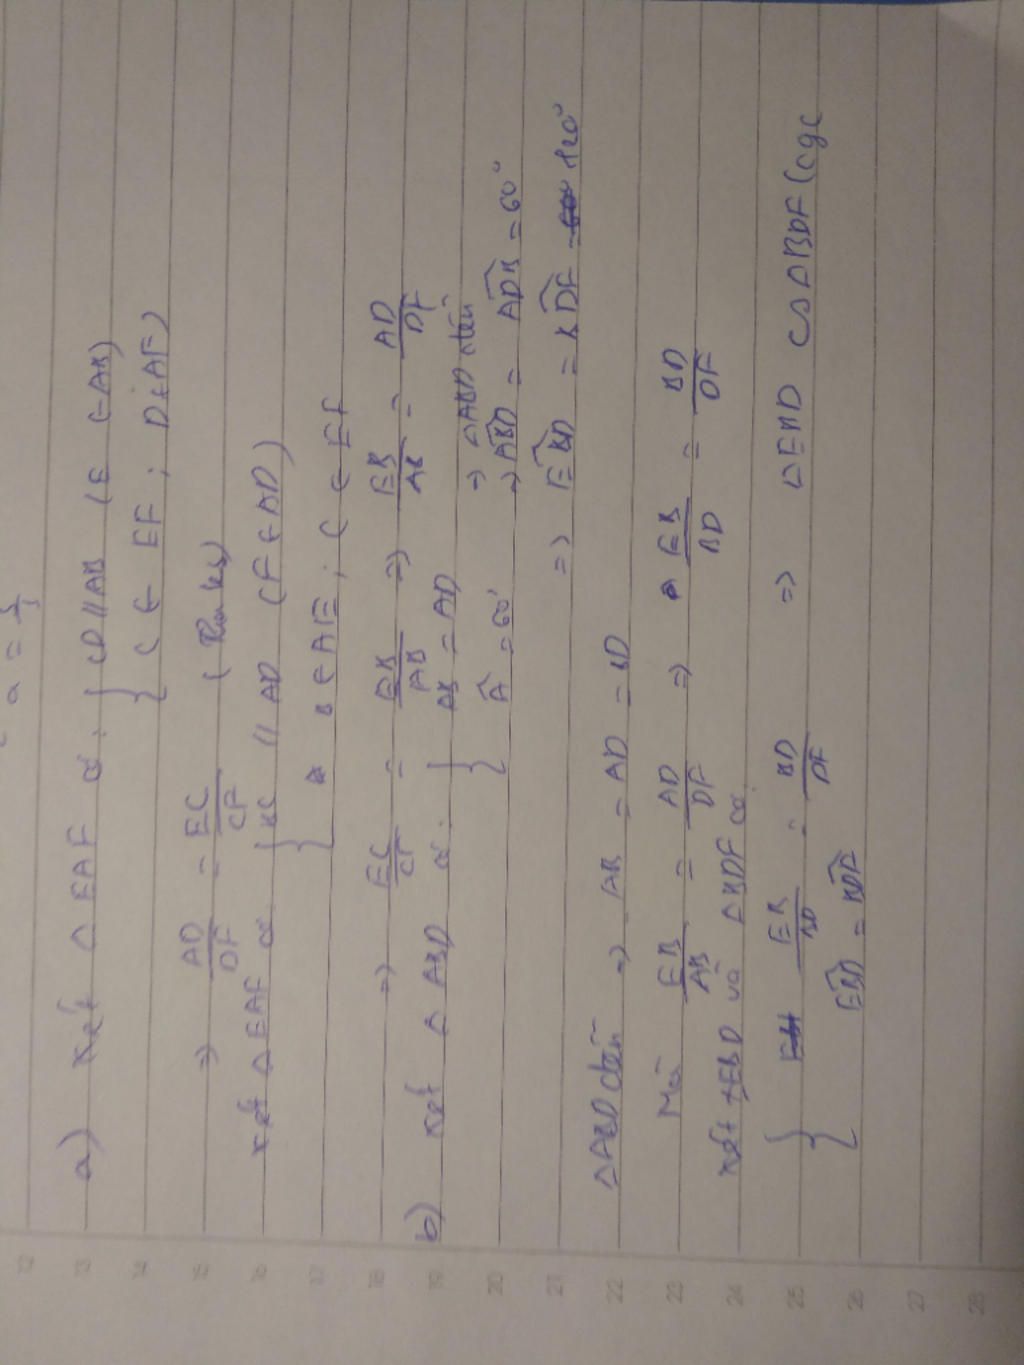 a = 
a) Xét △ EAF có: { CD // AB (E ∈ AB)
C ∈ EF ; D ∈ AF)
=> AD/DF = EC/CF (Talet)
xét △ EAF có { BC // AD (F ∈ AD)
B ∈ AE ; C ∈ EF
=> EC/CF = EB/AB => EB/AB = AD/DF
b) xét △ ABD có: { AB = AD => △ ABD đều
Â = 60° => ABD̂ = ADB̂ = 60°
=> EBD̂ = BDF̂ = 120°
△ABD đều => AB = AD = BD
Mà EB/AB = AD/DF => EB/BD = BD/DF
xét △EBD và △BDF có
{ EB/BD = BD/DF => △EBD ∽ △BDF (cgc
EBD̂ = BDF̂
12
13
14
15
16
17
18
19
20
21
22
23
24
25
26
27
28